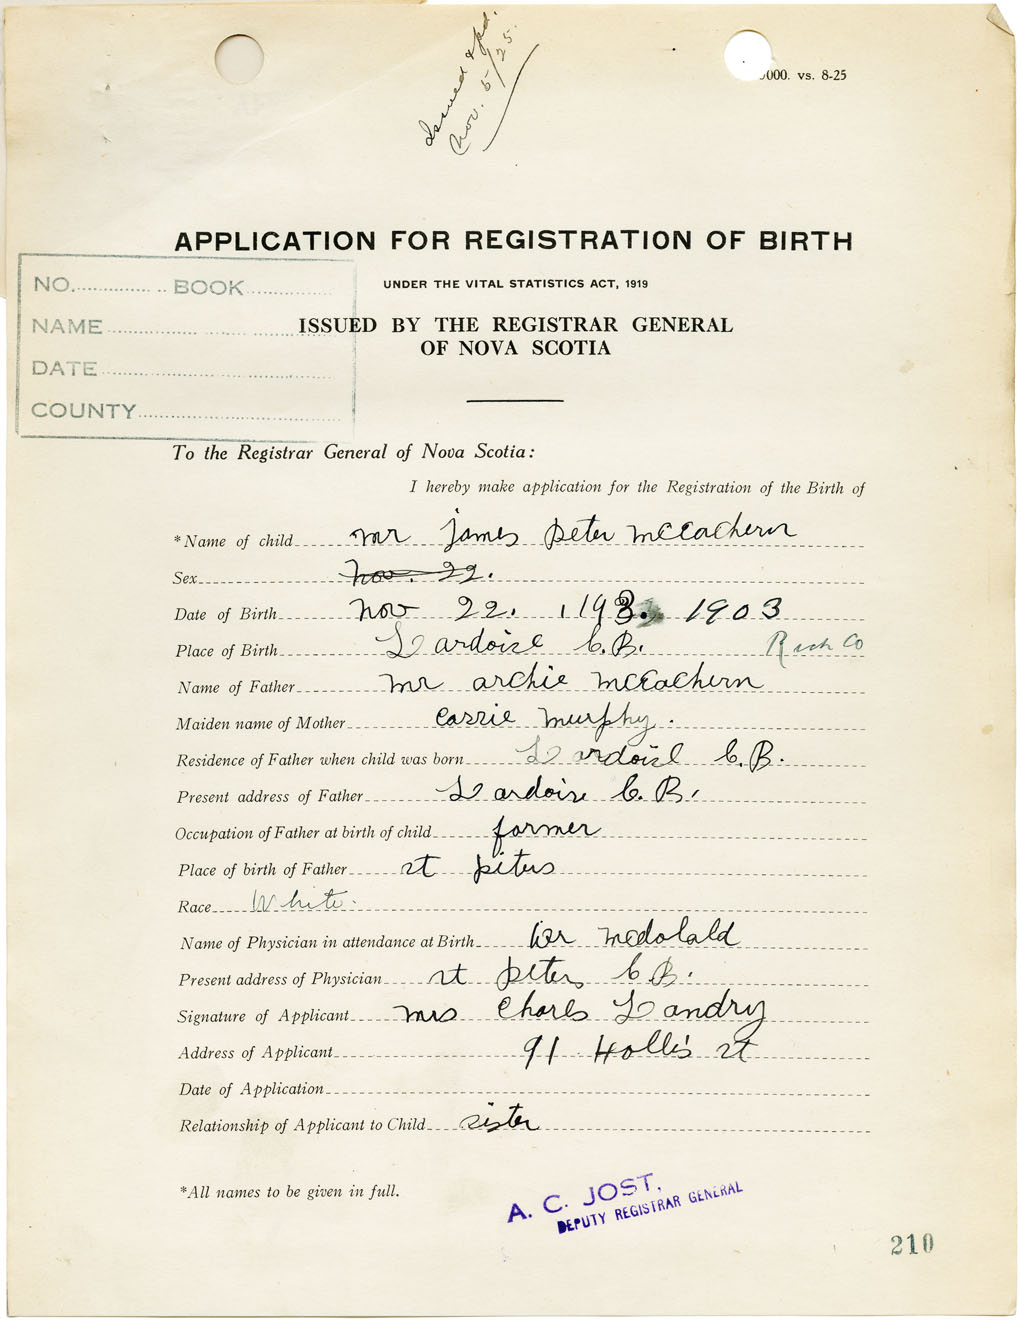 Issued & pd.
Nov. 5/25.
000. vs. 8-25
APPLICATION FOR REGISTRATION OF BIRTH
UNDER THE VITAL STATISTICS ACT, 1919
ISSUED BY THE REGISTRAR GENERAL
OF NOVA SCOTIA
NO. BOOK
NAME
DATE
COUNTY
To the Registrar General of Nova Scotia:
I hereby make application for the Registration of the Birth of
*Name of child mr james peter mcEachern
Sex nov. 22.
Date of Birth nov 22. 1903
Place of Birth L'ardoise C.B. Rich Co
Name of Father mr archie mcEachern
Maiden name of Mother Cassie murphy.
Residence of Father when child was born L'ardoise C.B.
Present address of Father L'ardoise C.B.
Occupation of Father at birth of child farmer
Place of birth of Father st piters
Race White.
Name of Physician in attendance at Birth Dr mcdolald
Present address of Physician st peters C.B.
Signature of Applicant mrs Charls Landry
Address of Applicant 91 Hollis st
Date of Application
Relationship of Applicant to Child sister
*All names to be given in full.
A. C. JOST,
DEPUTY REGISTRAR GENERAL
210